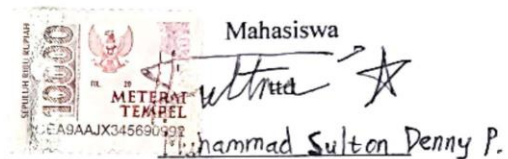 Mahasiswa
SEPULUH RIBU RUPIAH
10000
METERAI
TEMPEL
EA9AAJX345690992
Muhammad Sulton Denny P.